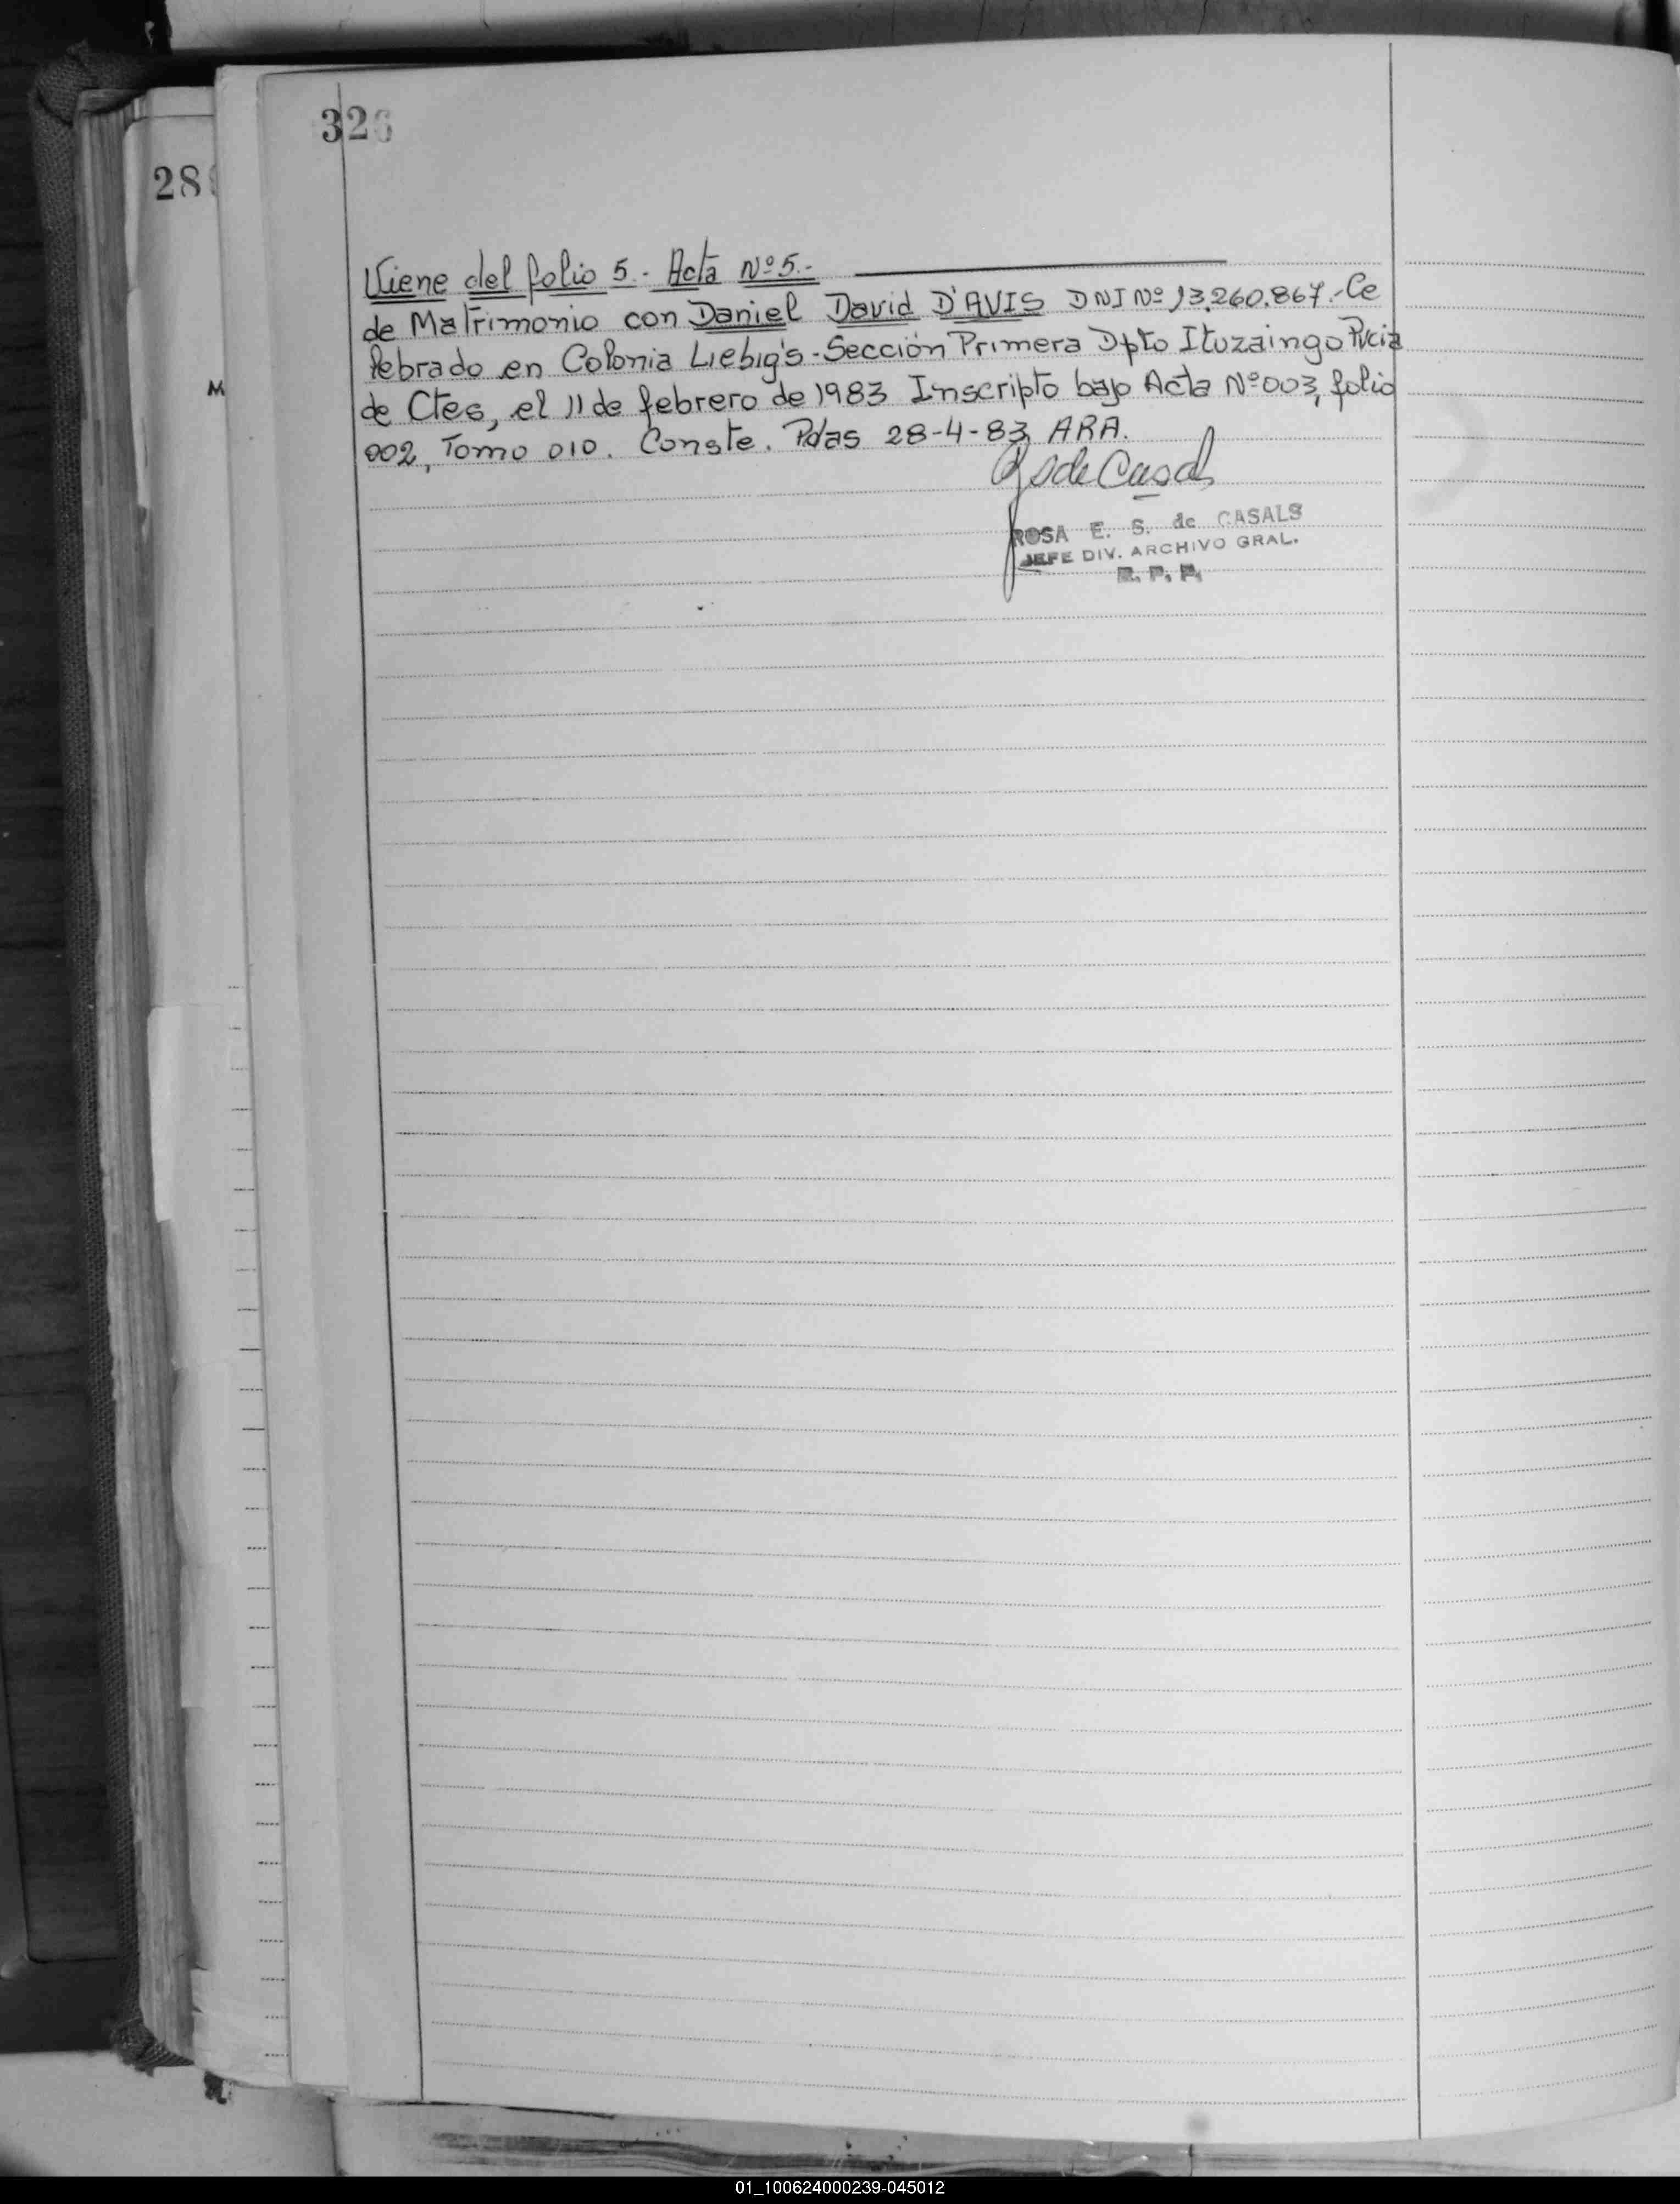 326
28
M
Viene del folio 5.- Acta Nº 5.-
de Matrimonio con Daniel David D'AVIS DNI Nº 13.260.867.- Ce
lebrado en Colonia Liebig's - Sección Primera Dpto Ituzaingo Pvcia
de Ctes, el 11 de febrero de 1983 Inscripto bajo Acta Nº 003, folio
002, Tomo 010. Conste. Pdas 28-4-83 ARA.
ROSA E. S. de CASALS
JEFE DIV. ARCHIVO GRAL.
R. P. P.
01_100624000239-045012